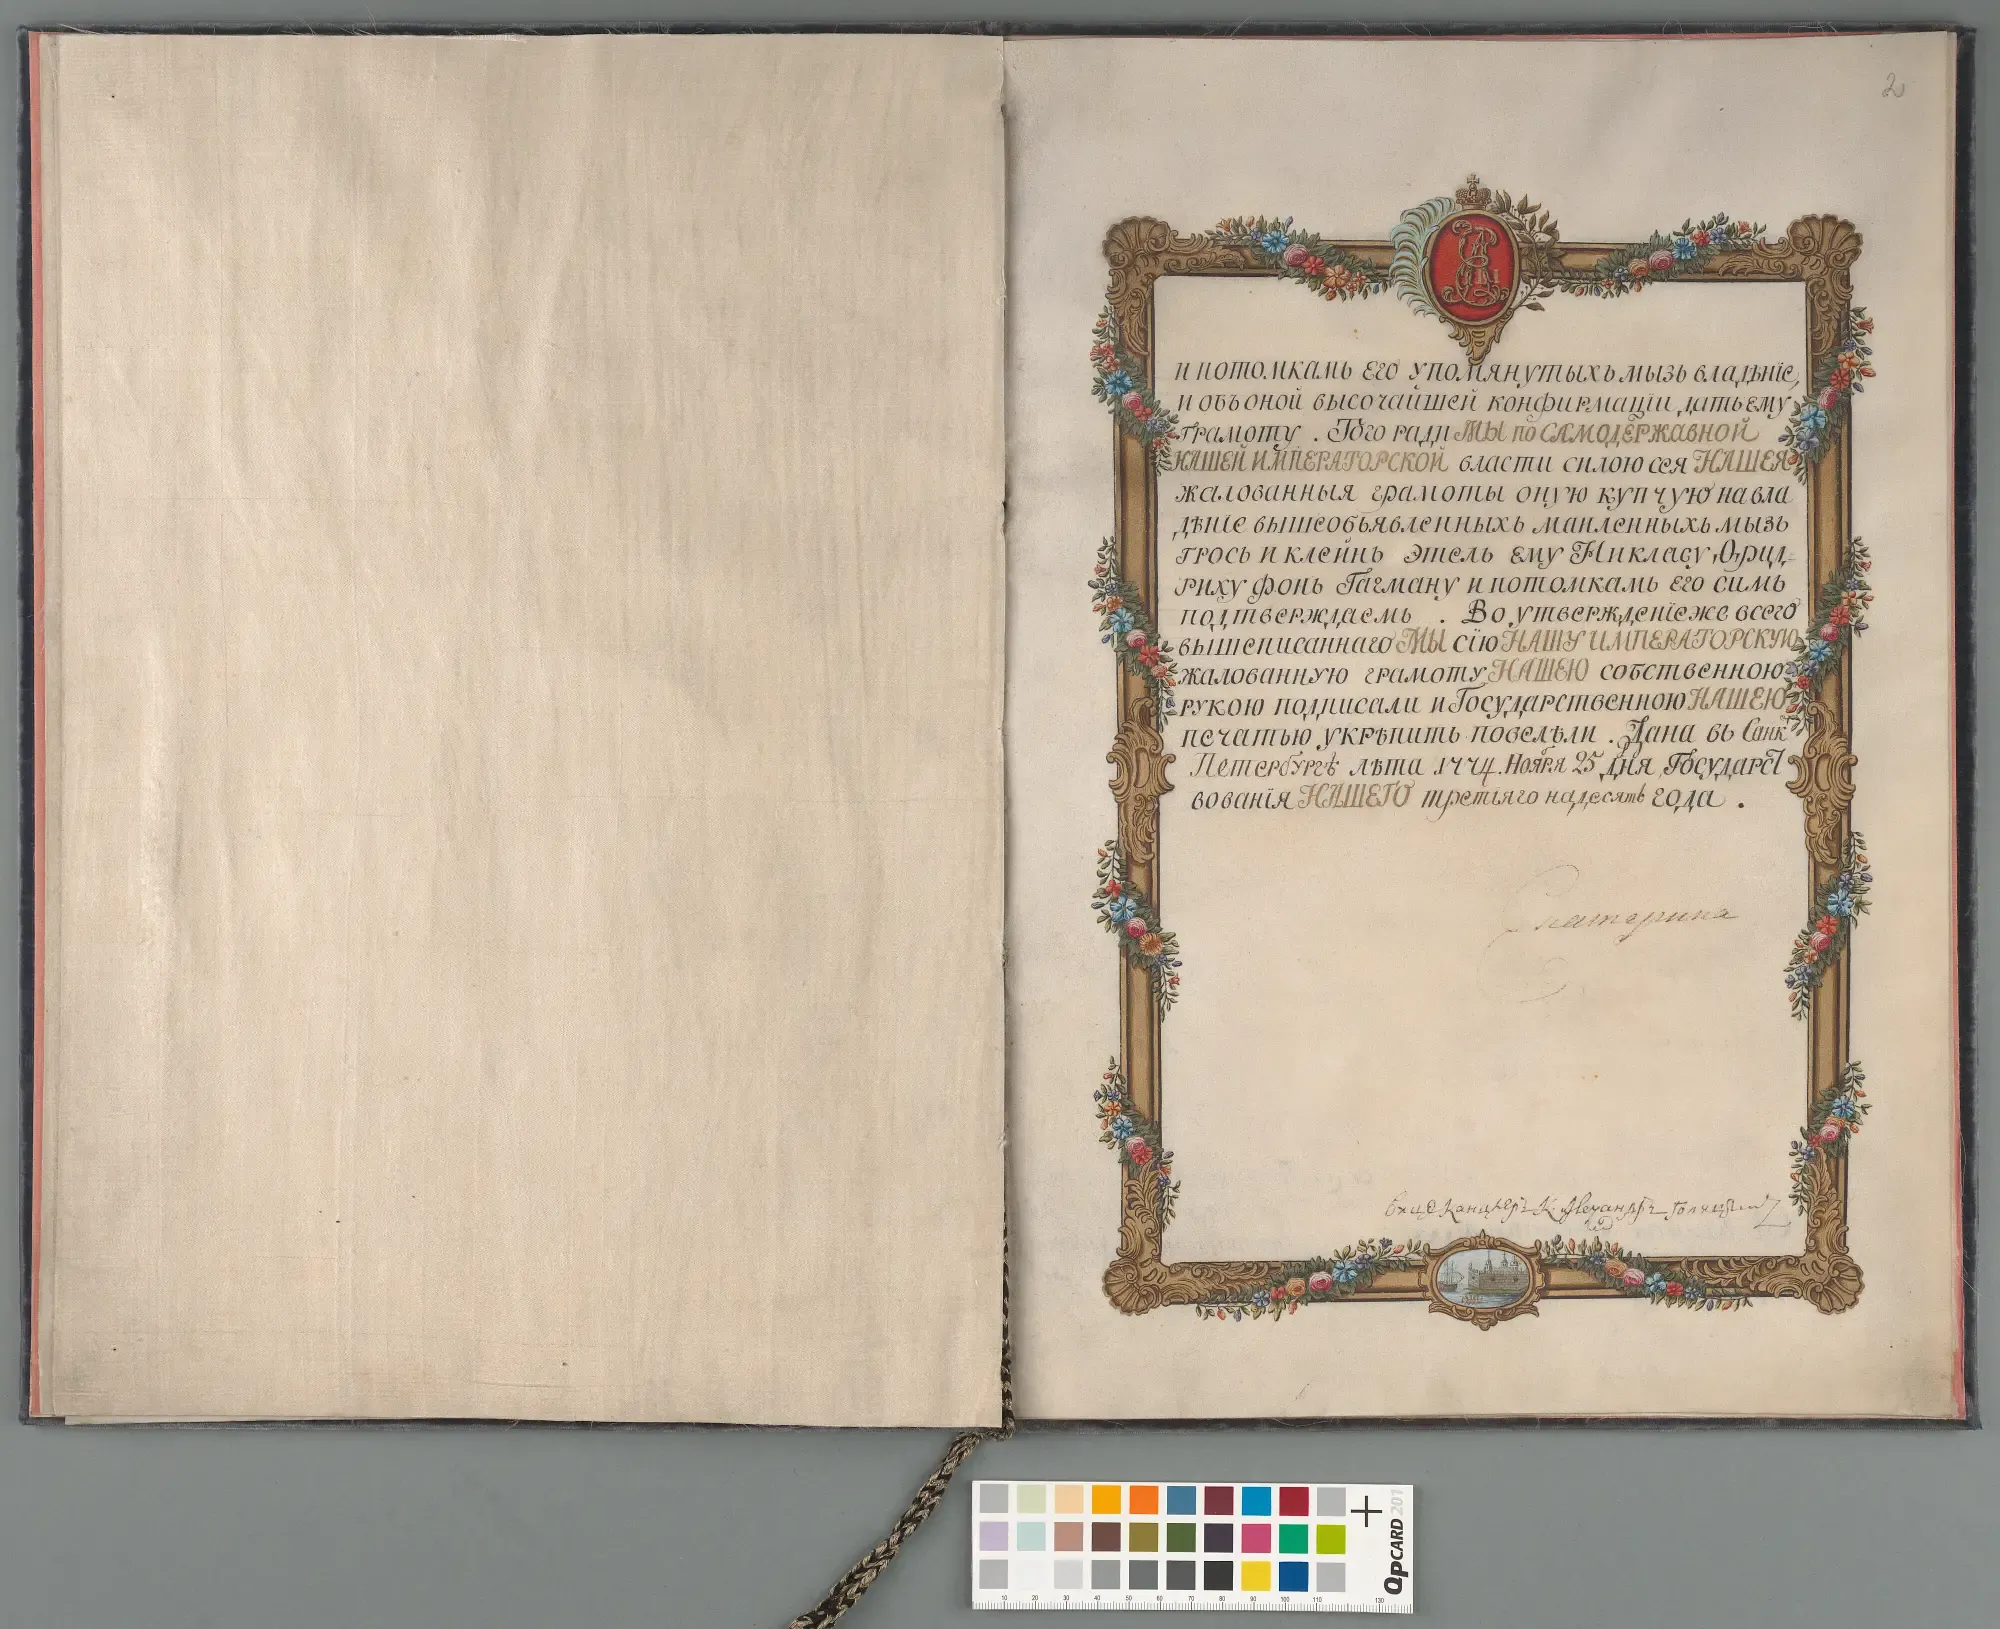 2
и потомкамъ его упомянутыхъ мызъ владѣніе,
и объ оной высочайшей конфирмаціи дать ему
грамоту. Того ради МЫ по САМОДЕРЖАВНОЙ
НАШЕЙ ИМПЕРАТОРСКОЙ власти силою сея НАШЕЯ
жалованныя грамоты оную купчую на вла
дѣніе вышеобъявленныхъ маиленныхъ мызъ
гросъ и клейнъ этель ему Никласу Фрид-
риху фонъ Гагману и потомкамъ его симъ
подтверждаемъ. Во утвержденіе же всего
вышеписаннаго МЫ сію НАШУ ИМПЕРАТОРСКУЮ
жалованную грамоту НАШЕЮ собственною
рукою подписали и Государственною НАШЕЮ
печатью укрѣпить повелѣли. Дана въ Санк
Петербургѣ лѣта 1774. Ноября 25 дня, Государст
вованія НАШЕГО третіяго надесять года.
Екатерина
Вице Канцлеръ К. Александръ Голицынъ
10 20 30 40 50 60 70 80 90 100 110 130
QpCARD 201